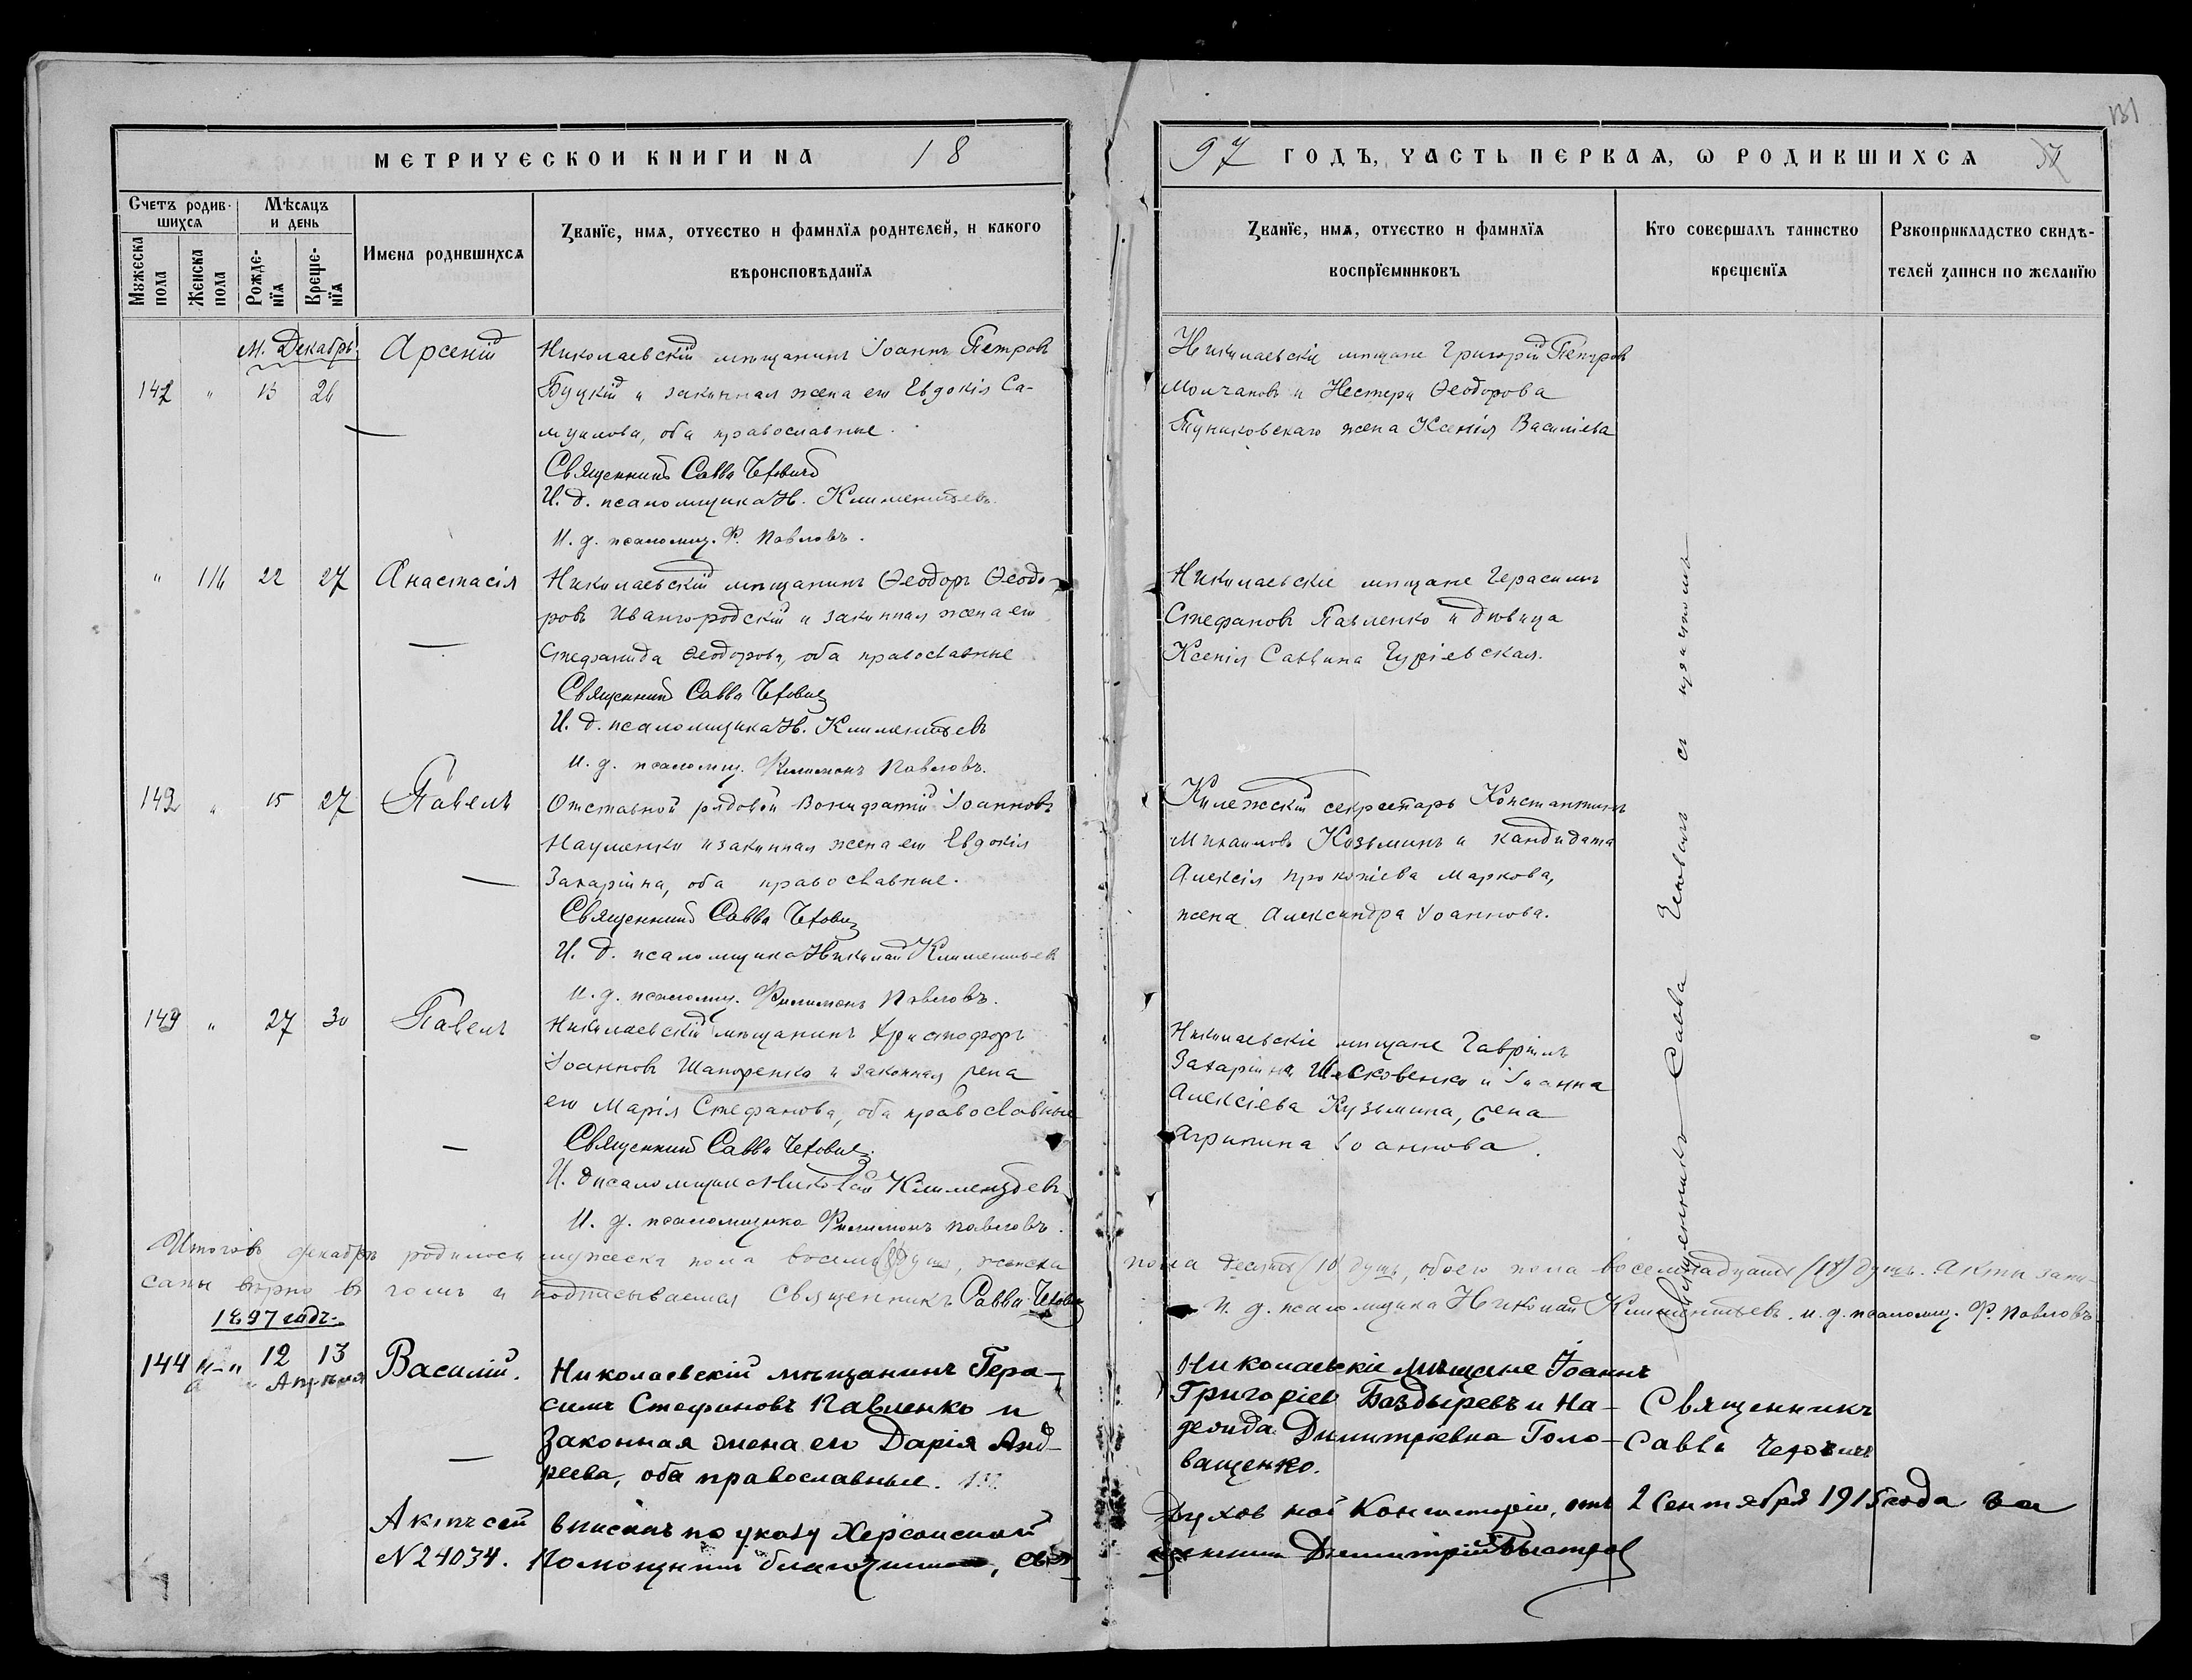 131
МЕТРИЧЕСКОЙ КНИГИ НА 18
97 ГОДЪ, ЧАСТЬ ПЕРВАЯ, Ѡ РОДИВШИХСЯ
Счетъ родившихся
Мѣсяцъ и день
Мужеска пола
Женска пола
Рожденїя
Крещенїя
Имена родившихся
Званїе, имя, отчество и фамилїя родителей, и какого
вѣроисповѣданїя
Званїе, имя, отчество и фамилїя
воспрїемниковъ
Кто совершалъ таинство
крещенїя
Рукоприкладство свидѣ-
телей записи по желанїю
М. Декабрь
142 " 13 26 Арсеній
Николаевскій мѣщанинъ Іоаннъ Петровъ
Буцкій и законная жена его Евдокія Са-
муилова, оба православные.
Священникъ Савва Чехович
И. д. псаломщика Н. Климентьевъ.
И. д. псаломщ. Ф. Павловъ.
Николаевскіе мѣщане Григорій Петровъ
Молчановъ и Нестера Ѳеодорова
жена Ксенія Василіева
" 116 22 27 Анастасія
Николаевскій мѣщанинъ Ѳеодоръ Ѳеодо-
ровъ Ивангородскій и законная жена его
Стефанида Ѳеодорова, оба православные
Священникъ Савва Чехович
И. д. псаломщика Н. Климентьевъ
И. д. псаломщ. Филимонъ Павловъ.
Николаевскіе мѣщане Герасимъ
Стефановъ Павленко и дѣвица
Ксенія Саввина Гуріевская.
142 " 15 27 Павелъ
Отставной рядовой Вонифатій Іоанновъ
Науменко и законная жена его Евдокія
Захаріина, оба православные.
Священникъ Савва Чехович
И. д. псаломщика Николай Климентьевъ
И. д. псаломщ. Филимонъ Павловъ.
Колежскій секретарь Константинъ
Михаиловъ Козьминъ и кандидата
Алексія Прокопіева Маркова,
жена Александра Іоаннова.
149 " 27 30 Павелъ
Николаевскій мѣщанинъ Христофоръ
Іоанновъ Шапоренко и законная жена
его Марія Стефанова, оба православные
Священникъ Савва Чехович.
И. д. псаломщика Николай Климентьевъ
И. д. псаломщика Филимонъ Павловъ.
Николаевскіе мѣщане Гавріилъ
Захаріинъ и Іоанна
Алексіева Кузьмина, жена
Агрипина Іоаннова.
Священникъ Савва Чеховичъ съ причтомъ
Итого въ декабрѣ родилось мужеска пола восемь (8) душъ, женска пола десять (10) душъ, обоего пола восемнадцать (18) душъ. Акты запи-
саны вѣрно въ чемъ и подписываемся Священникъ Савва Чехович И. д. псаломщика Николай Климентьевъ. и. д. псаломщ. Ф. Павловъ.
1897 годъ.
144 " 12 13 Апрѣля Василій.
Николаевскій мѣщанинъ Гера-
симъ Стефановъ Павленко и
законная жена его Дарія Анд-
реева, оба православные.
Николаевскіе мѣщане Іоаннъ
Григоріев Баздыревъ и На-
дежда Димитріевна Голо-
ващенко.
Священникъ
Савва Чеховичъ
Актъ сей вписанъ по указу Херсонской Духовной Консисторіи, отъ 2 Сентября 1915 года за
N 24034. Помощникъ благочиннаго, священникъ Димитрій